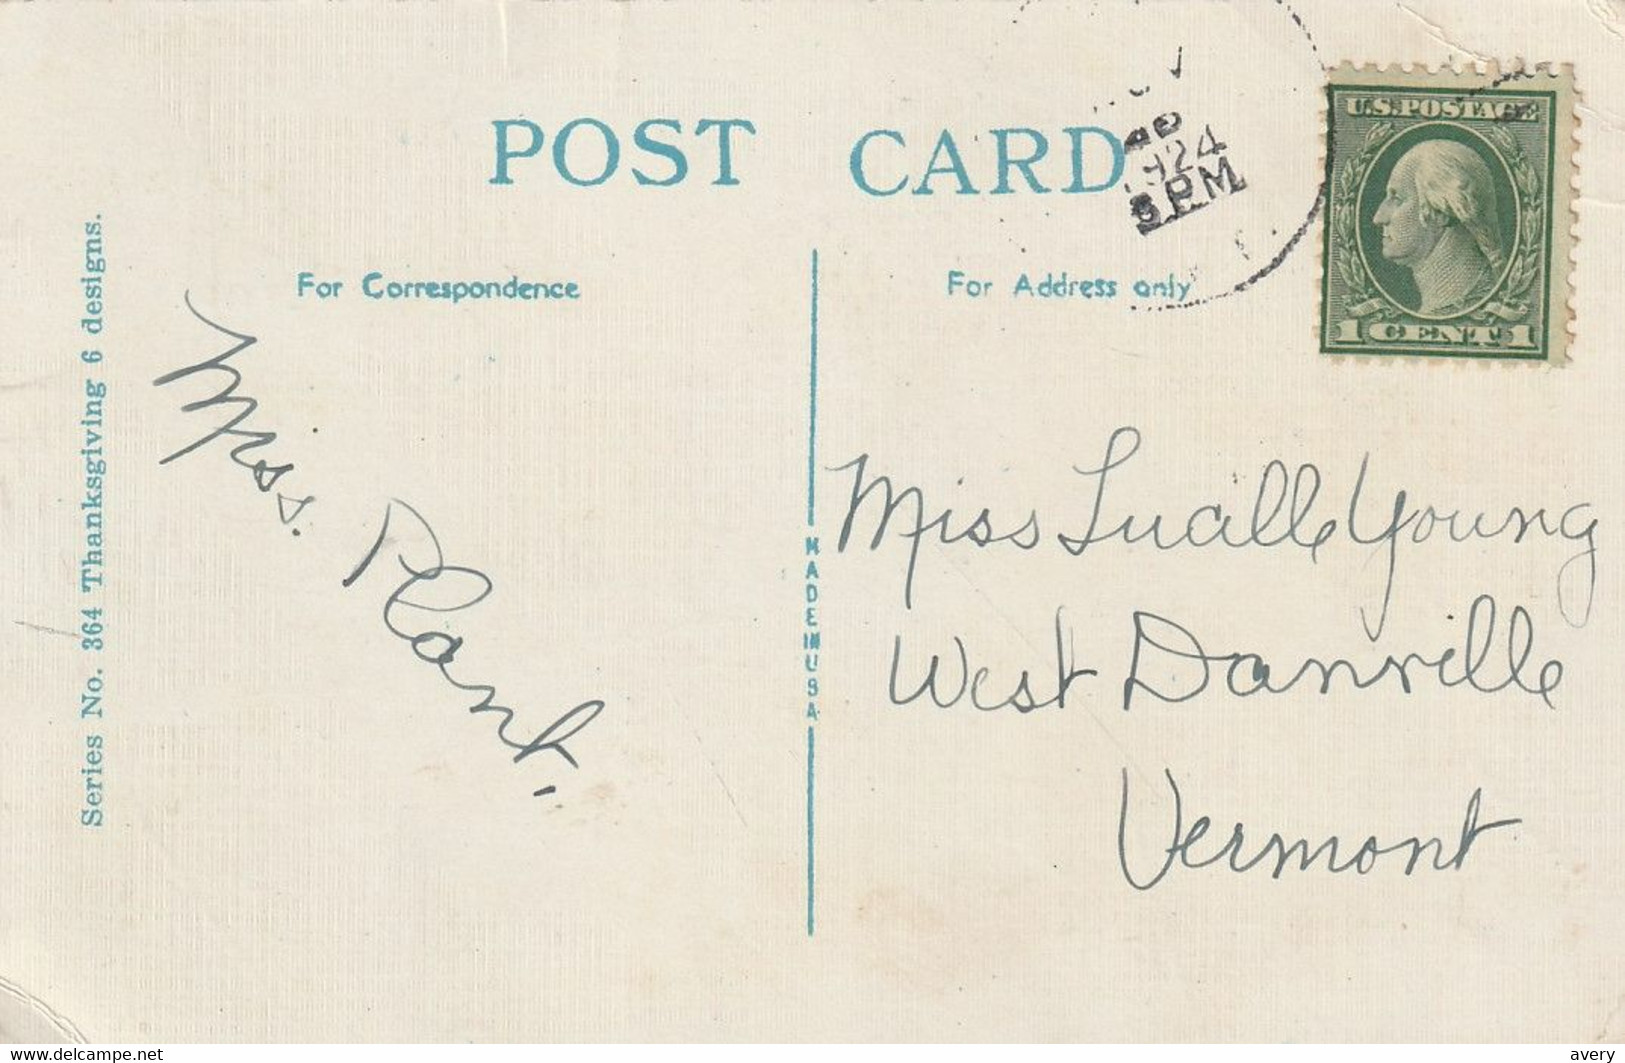 POST CARD
1924
PM
U.S. POSTAGE
1 CENT 1
For Correspondence
For Address only
Series No. 364 Thanksgiving 6 designs.
MADE IN USA
Mrs. Plank.
Miss Lualle Young
West Danville
Vermont
www.delcampe.net
avery